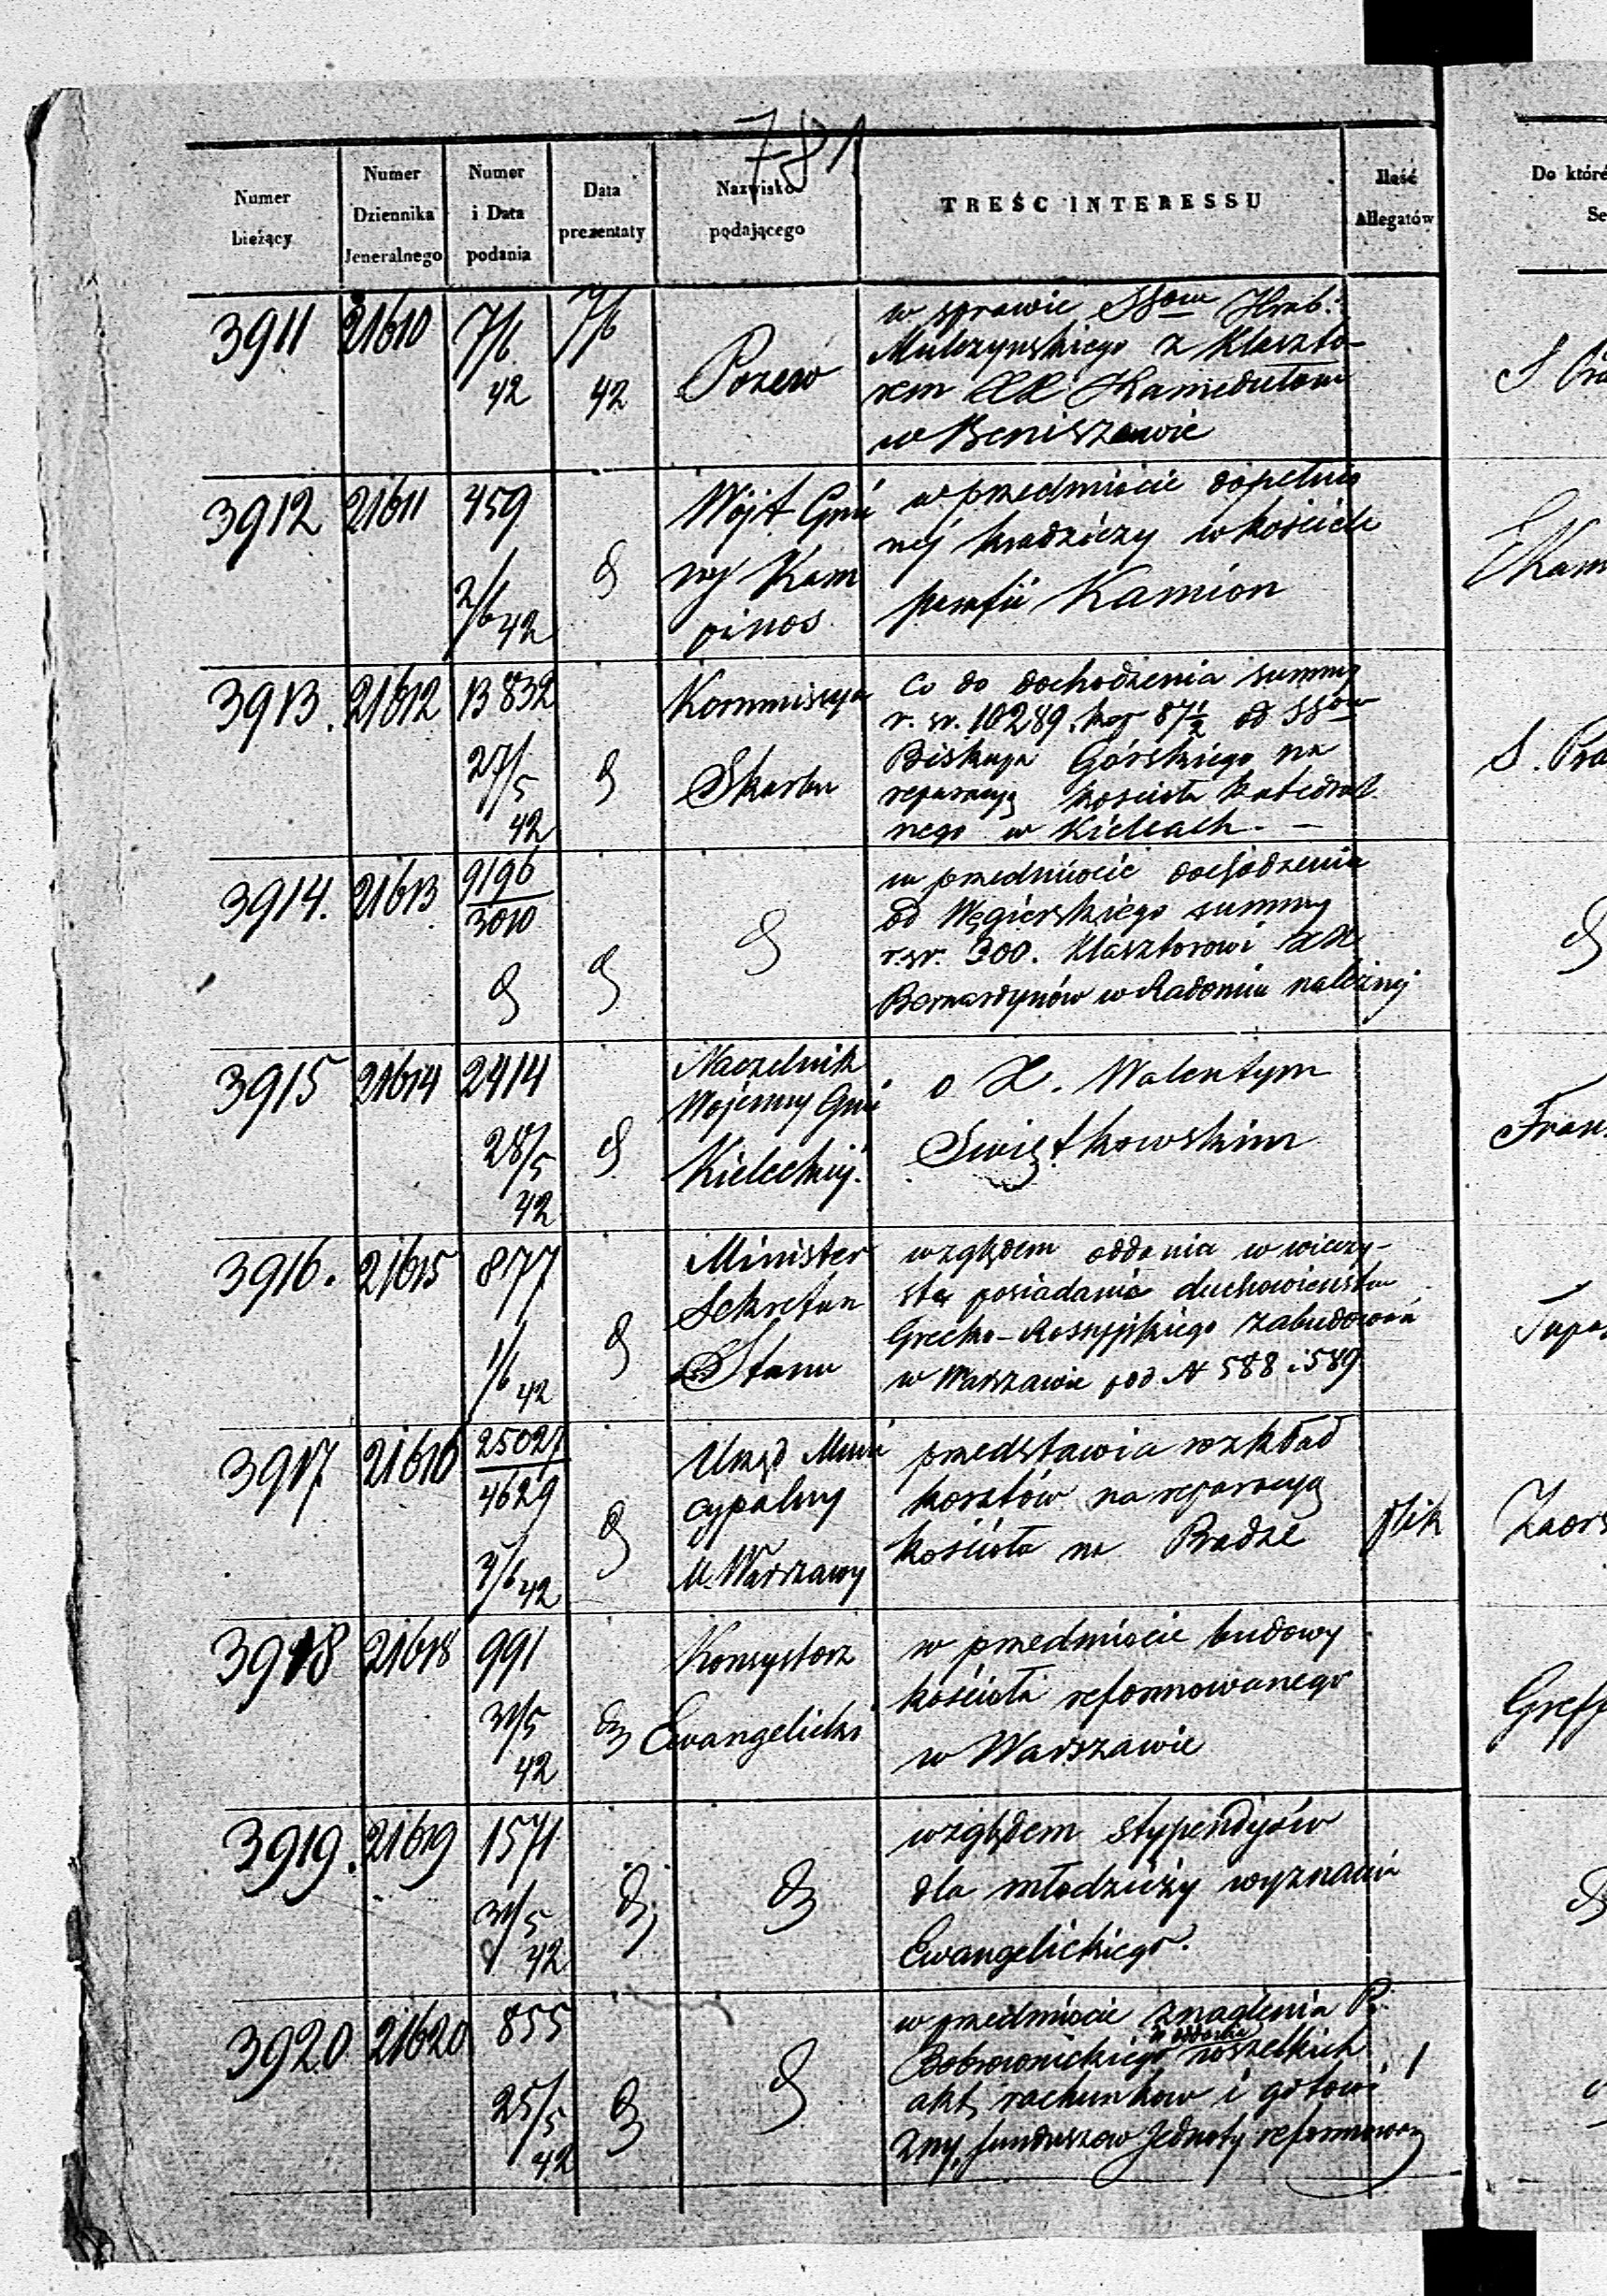 781
Numer bieżący
Numer Dziennika Jeneralnego
Numer i Data podania
Data prezentaty
Nazwisko podającego
TREŚC INTERESSU
Ilość Allegatów
Do któré
Se
3911 21610 7/6 42 7/6 42 Pozew
w sprawie SSów Hrab:
z Klaszto-
rem XX Kamedułów
w Beniszewie
3912 21611 459 2/6 42 d Wójt Gmi
ny Kam
pinos
w przedmiocie dopełnio
néj kradzieży w kościele
parafii Kamion
3913. 21612 13832 27/5 42 d Kommissya
Skarbu
Co do dochodzenia summy
r. sr. 10289. kop 87 1/2 od SSów
Biskupa Górskiego na
reparacyą kościoła katedral
nego w Kielcach. —
S. Pra
3914. 21613 9196/3010 d d d
w przedmiocie dochodzenia
od Węgierskiego summy
r. sr. 300. Klasztorowi XX
Bernardynów w Radomiu należnéj
d
3915 21614 2414 28/5 42 d Naczelnik
Wojenny Gui
Kieleckiéj.
o X. Walentym
Swiętkowskim
Fran
3916. 21615 877 1/6 42 d Minister
Sekretarz
Stanu
względem oddania w wieczy-
ste posiadanie duchowieństwu
Grecko-Rossyjskiego zabudowań
w Warszawie pod N 588 i 589
3917 21616 25027/4629 3/6 42 d Urząd Muni
cypalny
M. Warszawy
przedstawia rozkład
kosztów na reparacyą
kościoła na Pradze
plik
3918 21618 991 31/5 42 d Konsystorz
Ewangelicki
w przedmiocie budowy
kościoła reformowanego
w Warszawie
3919. 21619 1571 31/5 42 d d
względem stypendyów
dla młodzieży wyznania
Ewangelickiego.
d
3920 21620 855 25/5 42 d d
w przedmiocie znaglenia P.
Bobrownickiego o oddanie wszelkich
akt, rachunków i gotowi
zny, funduszów Jednoty reformowanéj
1